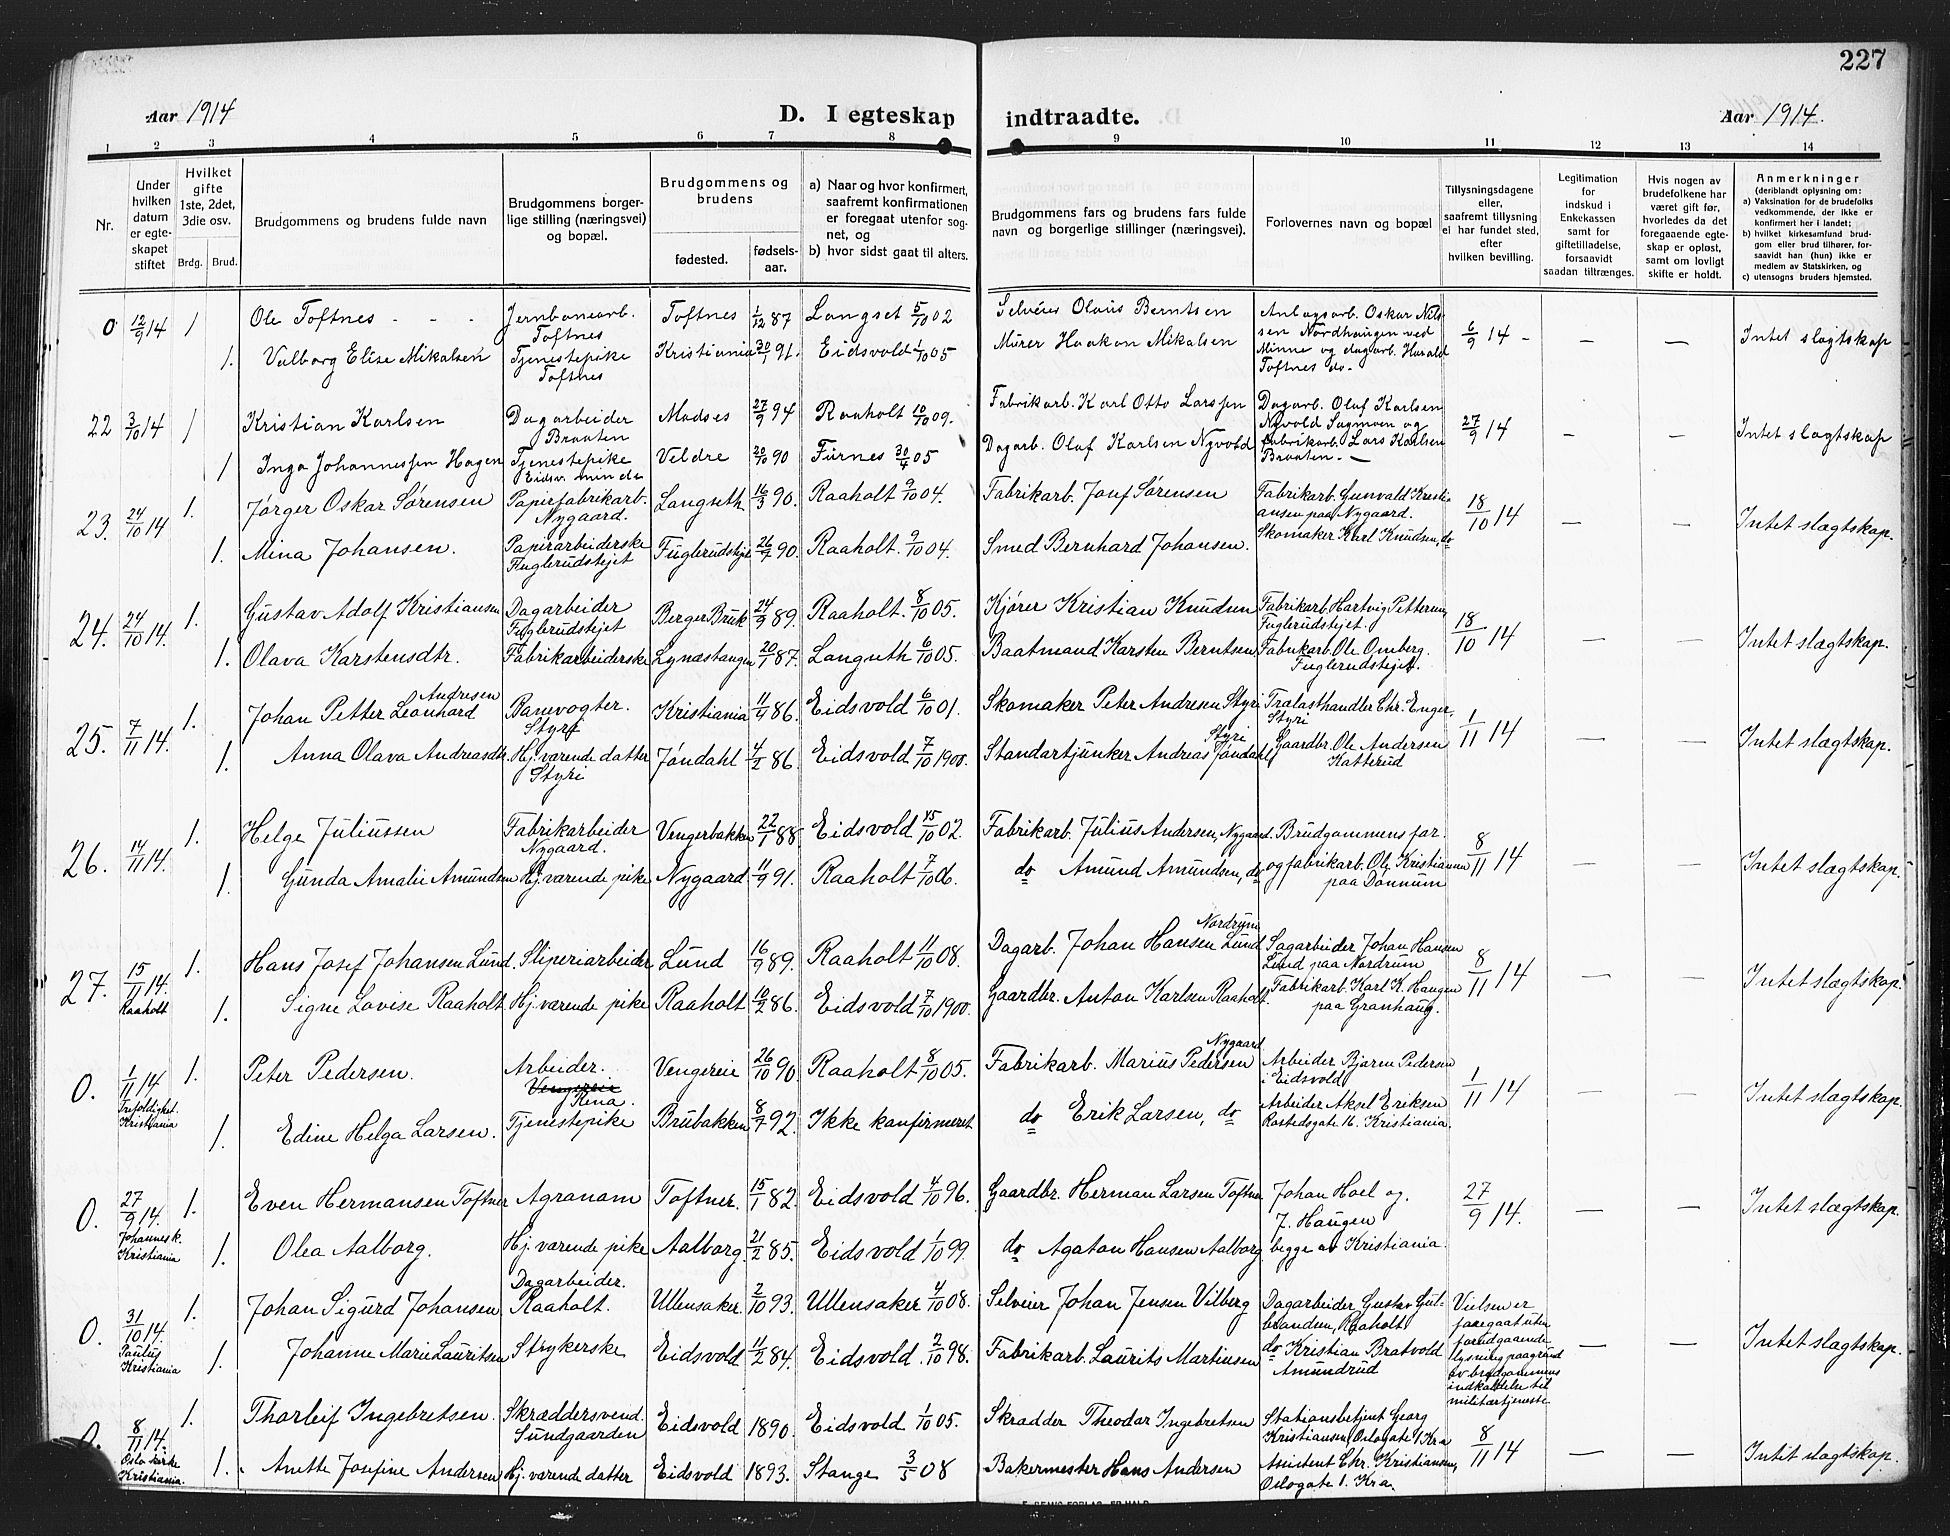 227
Aar 1914 D. I egteskap indtraadte. Aar 1914.
1 2 3 4 5 6 7 8 9 10 11 12 13 14
Nr.
Under hvilken datum er egteskapet stiftet
Hvilket gifte 1ste, 2det, 3die osv.
Brdg. Brud.
Brudgommens og brudens fulde navn
Brudgommens borgerlige stilling (næringsvei) og bopæl.
Brudgommens og brudens
fødested.
fødselsaar.
a) Naar og hvor konfirmert, saafremt konfirmationen er foregaat utenfor sognet, og
b) hvor sidst gaat til alters.
Brudgommens fars og brudens fars fulde navn og borgerlige stillinger (næringsvei).
Forlovernes navn og bopæl
Tillysningsdagene eller, saafremt tillysning ei har fundet sted, efter hvilken bevilling.
Legitimation for indskud i Enkekassen samt for giftetilladelse, forsaavidt saadan tiltrænges.
Hvis nogen av brudefolkene har været gift før, hvorledes da det foregaaende egteskap er opløst, samt om lovligt skifte er holdt.
Anmerkninger
(deriblandt oplysning om:
a) Vaksination for de brudefolks vedkommende, der ikke er konfirmert her i landet;
b) hvilket kirkesamfund brudgom eller brud tilhører, forsaavidt han (hun) ikke er medlem av Statskirken, og
c) utensogns bruders hjemsted.
0 12/9 14 1 Ole Toftnes - - - Jernbanearb. Toftnes Toftnes 1/12 87 Langset 5/10 02 Selveier Olaus Berntsen Anlagsarb. Oskar Nilssen Nordhaugen ved Minne og dagarb. Harald Toftnes do. 6/9 14 - — — Intet slagtskap
1. Valborg Elise Mikalsen Tjenestepike Toftnes Kristiania 30/1 91. Eidsvold 1/10 05 Murer Haakon Mikalsen
22 3/10 14 1 Kristian Karlsen Dagarbeider Braaten Modses 27/9 94 Raaholt 10/10 09. Fabrikarb. Karl Otto Larssen Dagarb. Olaf Karlsen Nyvold Sagmoen og fabrikarb. Lars Karlsen Braaten. — 27/9 14 — — Intet slagtskap
1 Inga Johannessen Hagen Tjenestepike Eidsv. minde Veldre 20/10 90 Furnes 30/4 05 Dagarb. Olaf Karlsen Nyvold
23. 24/10 14 1. Jørger Oskar Sørensen Papirfabrikarb. Nygaard. Langseth 16/3 90. Raaholt 9/10 04. Fabrikarb. Josef Sørensen Fabrikarb. Gunvald Kristiansen paa Nygaard. 18/10 14 — — Intet slægtskap.
1. Mina Johansen. Papirarbeiderske Fuglerudstejet Fuglerudstejet 26/7 90. Raaholt 9/10 04. Smed Bernhard Johansen. Skomaker Karl Knudsen, do
24. 24/10 14. 1. Gustav Adolf Kristiansen Dagarbeider Fuglerudstejet Berger Bruk 24/9 89. Raaholt. 8/10 05. Kjører Kristian Knudsen Fabrikarb. Hartvig Pettersen, Fuglerudstejet. 18/10 14 — — Intet slægtskap.
1. Olava Karstensdtr. Fabrikarbeiderske Lynæstangen 20/1 87. Langseth 6/10 05. Baatmand Karsten Berntsen Fabrikarb. Ole Omberg. Fuglerudstejet.
25. 7/11 14. 1. Johan Petter Leonhard Andresen Banevogter. Styri Kristiania 11/9 86. Eidsvold 6/10 01. Skomaker Peter Andresen Styri Trælasthandler Chr. Enger, Styri 1/11 14 — — Intet slægtskap.
1. Anna Olava Andreasdtr. Hj. værende datter Styri Jøndahl 4/2 86 Eidsvold 7/10 1900. Standartjunker Andreas Jøndahl Styri Gaardbr. Ole Andersen Katterud
26. 14/11 14. 1. Helge Juliussen Fabrikarbeider Nygaard. Vengerbakken 22/1 88 Eidsvold 15/10 02. Fabrikarb. Julius Andersen, Nygaard. Brudgommens far. 8/11 14 — — Intet slægtskap.
1. Gunda Amalie Amundsen Hj. værende pike Nygaard. 11/9 91. Raaholt 7/10 06. do Amund Amundsen, do og fabrikarb. Ole Kristiansen paa Dønnum
27. 15/11 14. Raaholt 1. Hans Josef Johansen Lund. Sliperiarbeider Lund 16/9 89. Raaholt 11/10 08. Dagarb. Johan Hansen Lund Nordrum Sagarbeider Johan Hansen Lund paa Nordrum 8/11 14 — — Intet slægtskap.
1. Signe Lovise Raaholt Hj. værende pike Raaholt 6/2 86. Eidsvold 7/10 1900. Gaardbr. Anton Karlsen Raaholt. Fabrikarb. Karl K. Haugen paa Granhaug.
0. 1/11 14 Trefoldighet. Kristiania 1. Peter Pedersen. Arbeider. Vengereie Rena. Vengereie 26/10 90. Raaholt 8/10 05. Fabrikarb. Marius Pedersen Nygaard Arbeider Bjarne Pedersen i Eidsvold 1/11 14 — — Intet slægtskap.
1. Edine Helga Larsen. Tjenestepike Brubakken 8/7 92. Ikke konfirmeret do Erik Larsen, do Arbeider Aksel Eriksen Rostedsgate 16. Kristiania.
0. 27/9 14. Johannesk. Kristiania 1. Even Hermansen Toftner Agronom Toftner. 15/1 82. Eidsvold 4/10 96. Gaardbr. Herman Larsen Toftner Johan Hoel og 27/9 14. — — Intet slægtskap.
1. Olea Aalborg. Hj. værende pike Aalborg. 21/2 85. Eidsvold 1/10 99. do Agaton Hansen Aalborg J. Haugen begge av Kristiania.
0. 31/10 14. Paulus Kristiania 1. Johan Sigurd Johansen Dagarbeider. Raaholt. Ullensaker. 2/10 93. Ullensaker 4/10 08. Selveier Johan Jensen Vilberg Dagarbeider Gustav Gulbrandsen, Raaholt. Vielsen er foregaat uten forudgaaende lysning paa grund av brudgommens indkaldelse til militærtjeneste. — — Intet slægtskap.
1. Johanne Marie Lauritsen Strykerske Eidsvold 11/2 84. Eidsvold. 2/10 98. Fabrikarb. Laurits Martinsen do Kristian Bratvold Amundrud
0. 8/11 14. Oslo kirke Kristiania. 1. Thorleif Ingebretsen. Skræddersvend. Sundgaarden Eidsvold 1890. Eidsvold 1/10 05. Skrædder Theodor Ingebretsen Stationsbetjent Georg Kristiansen, Oslogate 1 Kra 8/11 14 — — Intet slægtskap.
1. Anette Josefine Andersen Hj. værende datter Eidsvold 1893. Stange 3/5 08 Bakermester Hans Andersen Assistent Chr. Kristiansen, Oslogate 1. Kra.